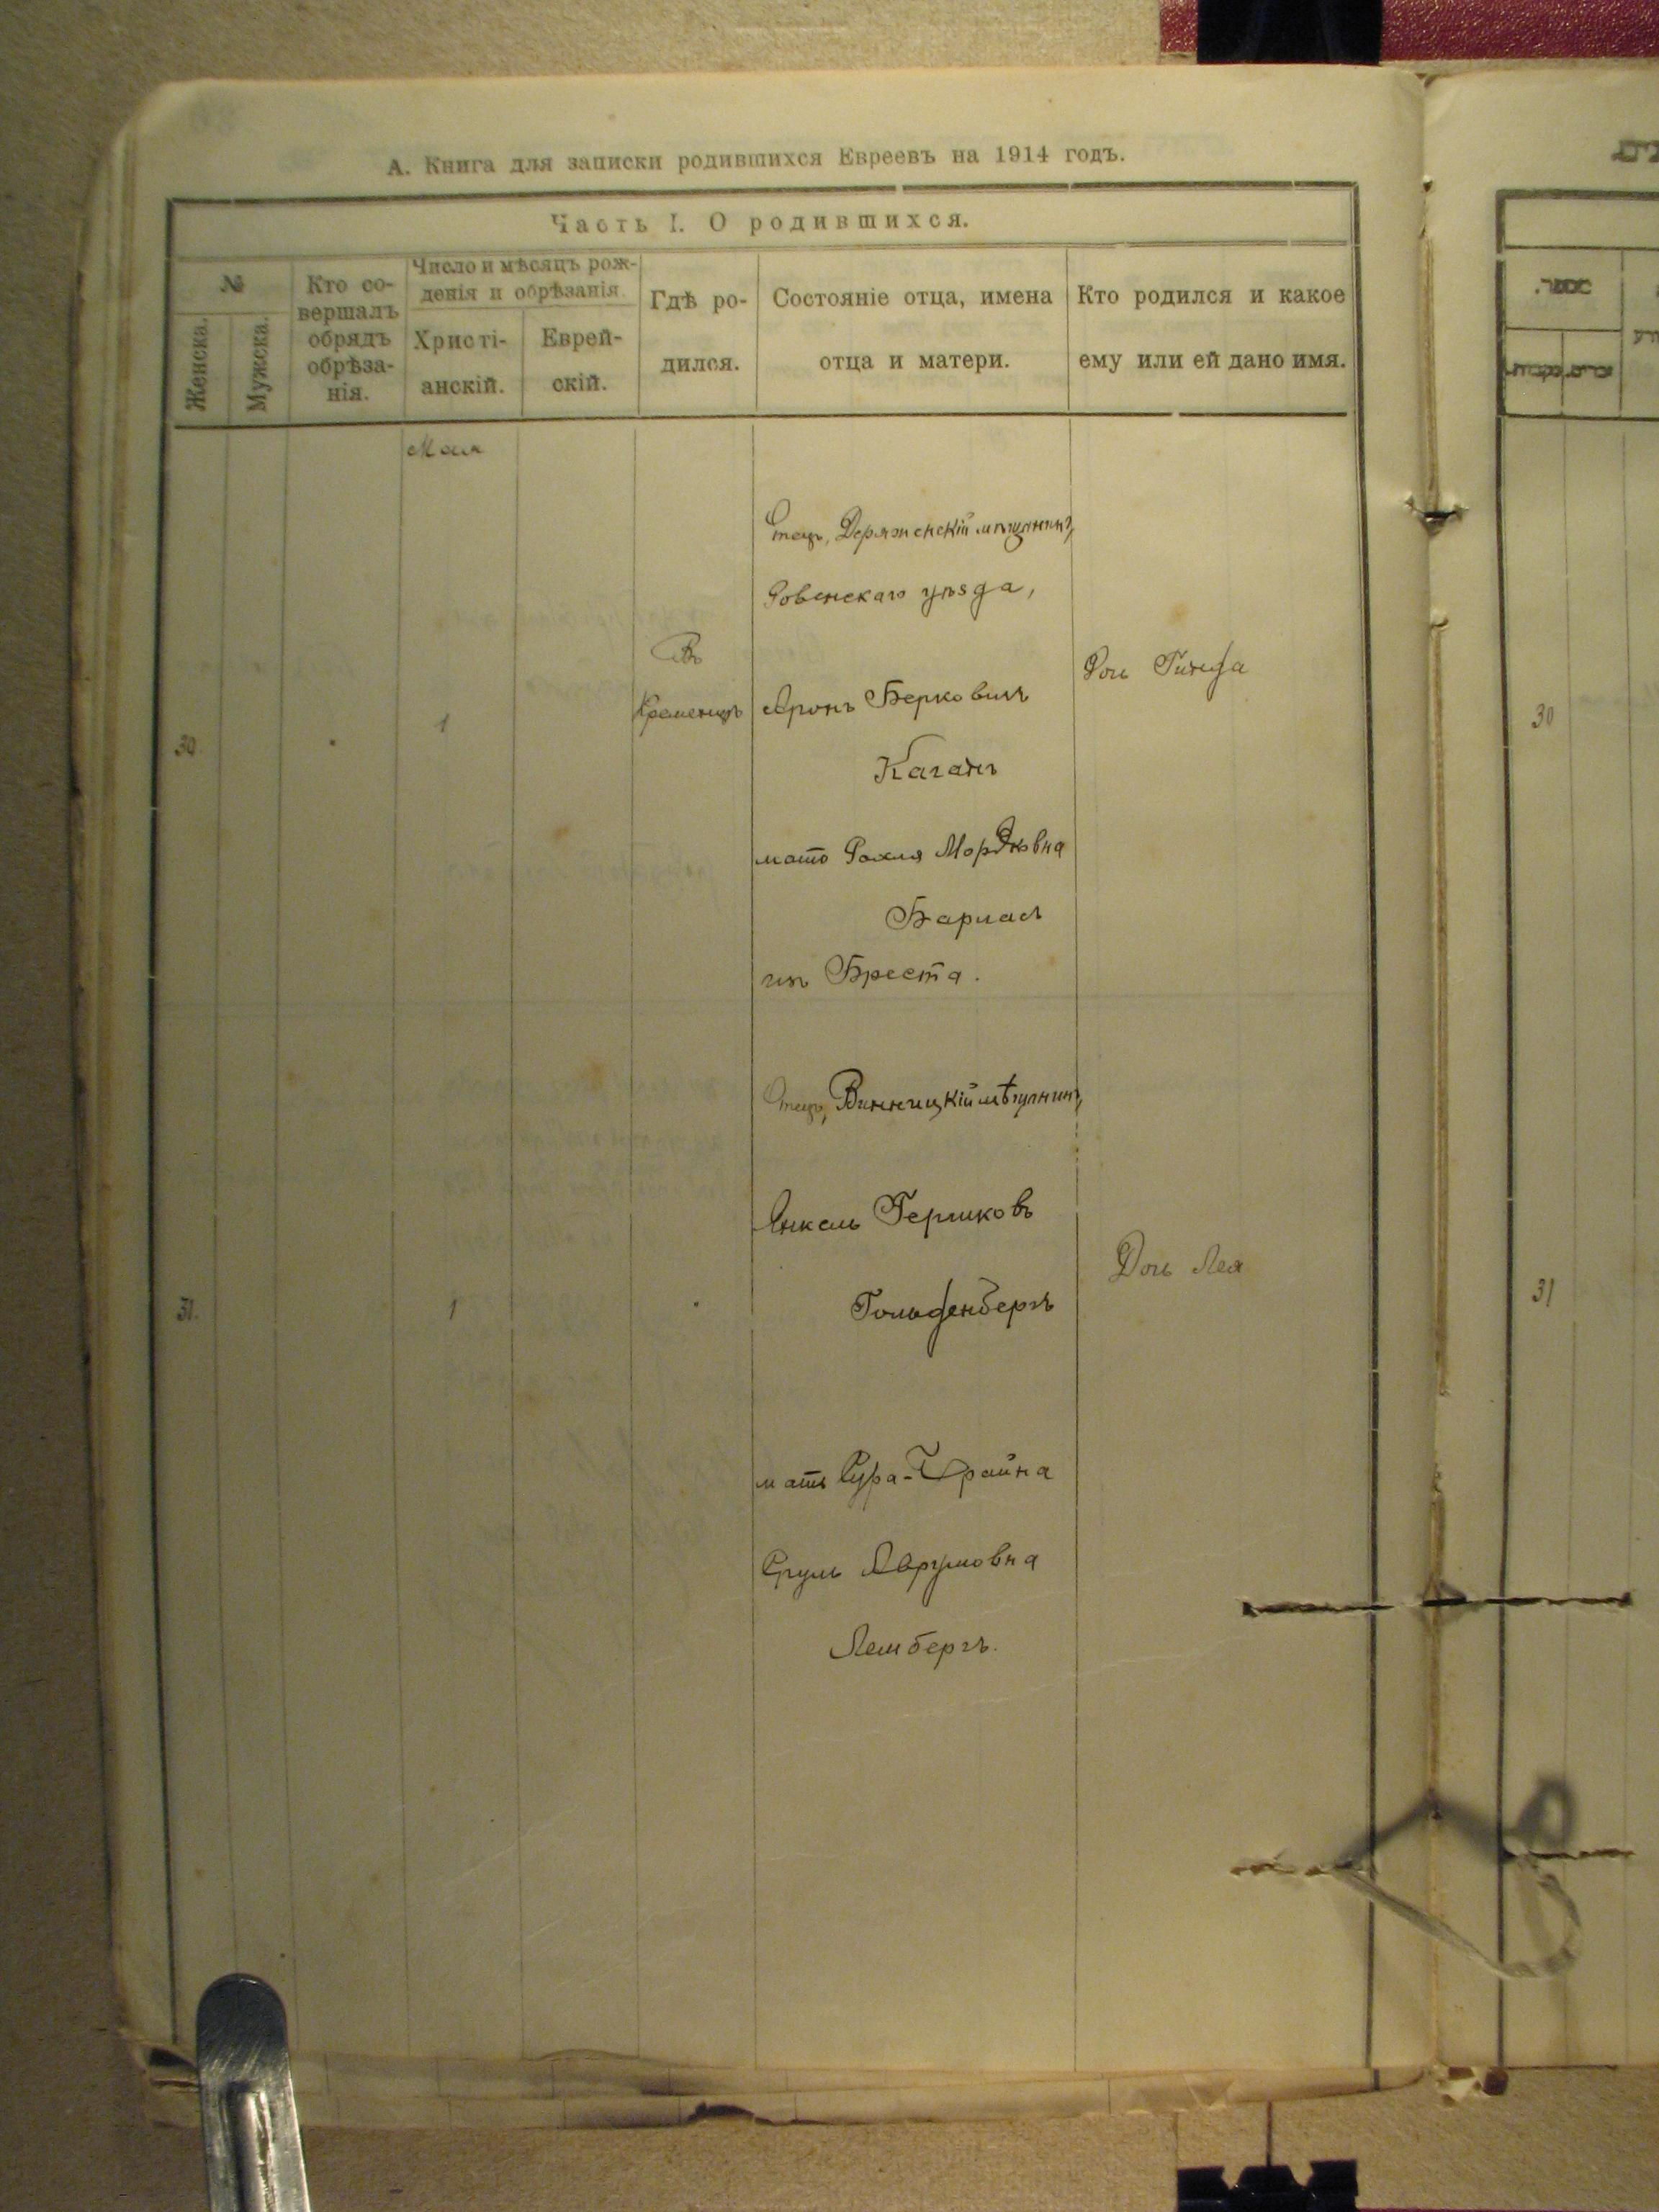 А. Книга для записки родившихся Евреевъ на 1914 годъ.
Часть I. О родившихся.
№
Женска.
Мужска.
Кто со-
вершалъ
обрядъ
обрѣза-
нія.
Число и мѣсяцъ рож-
денія и обрѣзанія.
Христі-
анскій.
Еврей-
скій.
Гдѣ ро-
дился.
Состояніе отца, имена
отца и матери.
Кто родился и какое
ему или ей дано имя.
Мая
30.
1
Въ
Кременцѣ
Отецъ, Деражненскій мѣщанинъ,
Ровенскаго уѣзда,
Аронъ Берковичъ
Каганъ
мать Рохля Мордковна
Бармас
изъ Бреста.
Дочь Гинда
31.
1
Отецъ, Винницкій мѣщанинъ,
Янкель Гершковъ
Гольденбергъ
мать Сура-Фрайна
Сруль Аврумовна
Лембергъ.
Дочь Лея
30
31